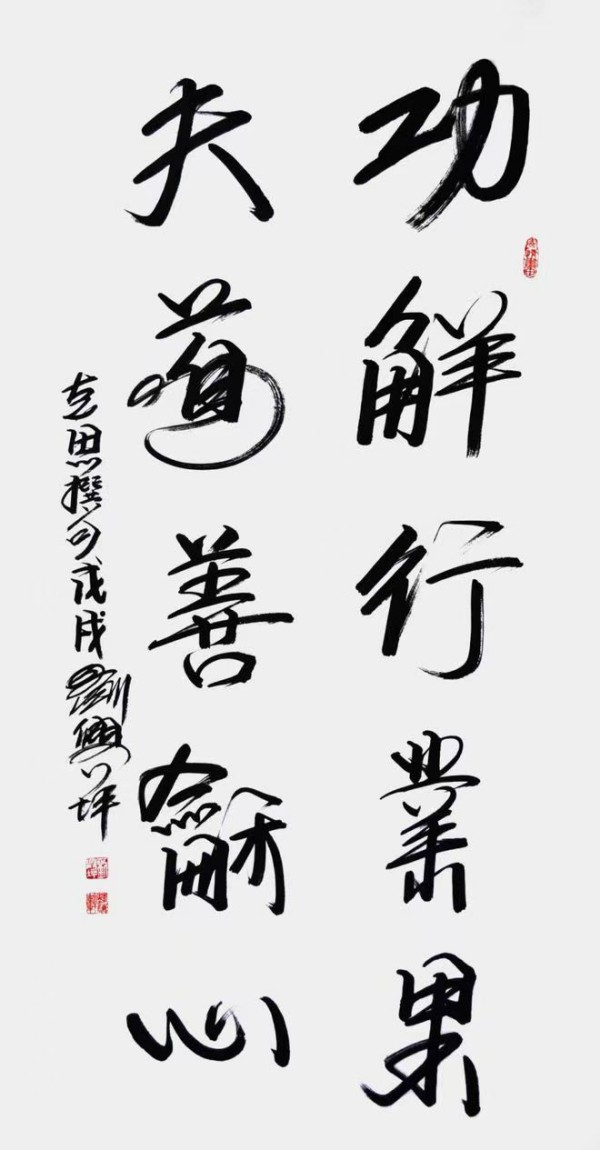 功解行業果
夫道善龢心
思撰句戊戌劉興坪